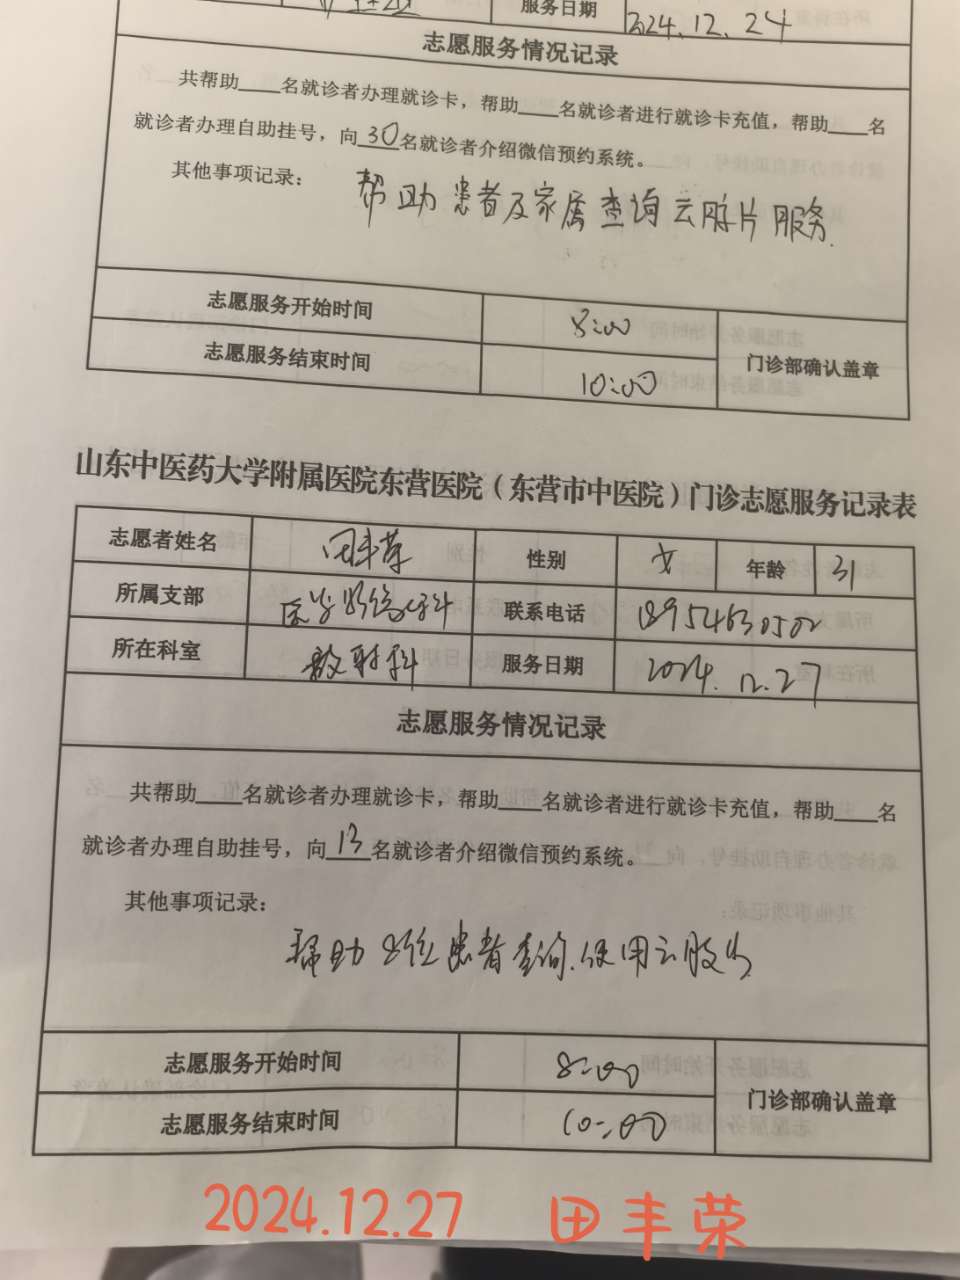 服务日期 2024.12.24
志愿服务情况记录
共帮助____名就诊者办理就诊卡，帮助____名就诊者进行就诊卡充值，帮助____名
就诊者办理自助挂号，向 30 名就诊者介绍微信预约系统。
其他事项记录： 帮助患者及家属查询云胶片服务.
志愿服务开始时间 8:00
志愿服务结束时间 10:00
门诊部确认盖章
山东中医药大学附属医院东营医院（东营市中医院）门诊志愿服务记录表
志愿者姓名 田丰荣 性别 女 年龄 31
所属支部 医学影像科 联系电话 18954630502
所在科室 放射科 服务日期 2024.12.27
志愿服务情况记录
共帮助____名就诊者办理就诊卡，帮助____名就诊者进行就诊卡充值，帮助____名
就诊者办理自助挂号，向 13 名就诊者介绍微信预约系统。
其他事项记录：
帮助8位患者查询.使用云胶片
志愿服务开始时间 8:00
志愿服务结束时间 10:00
门诊部确认盖章
2024.12.27 田丰荣